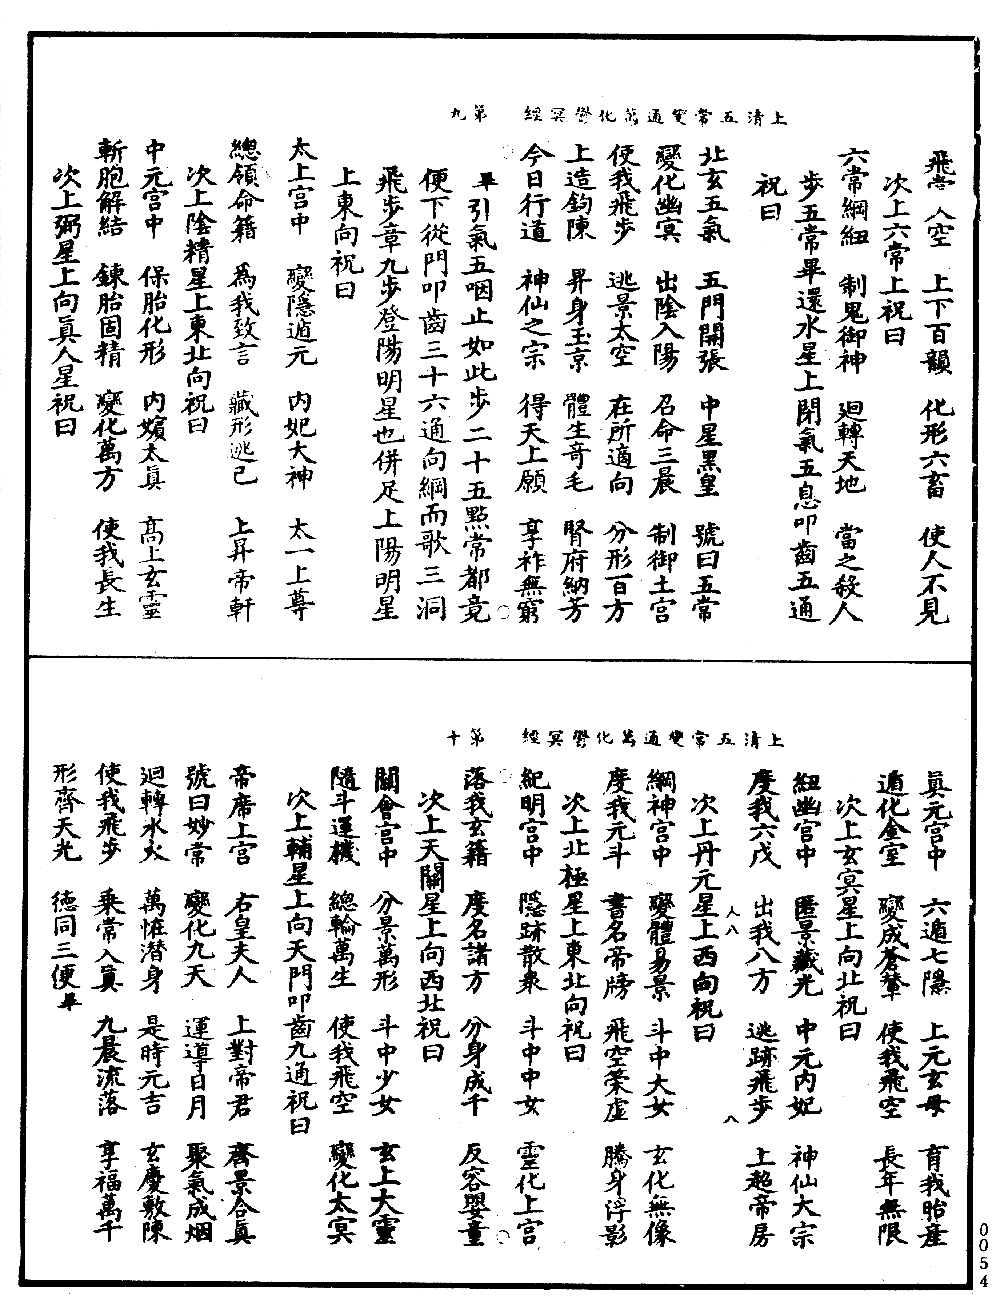 上清五常變通萬化鬱冥經　第九
飛　人空　上下百韻　化形六畜　使人不見
次上六常上祝曰
六常綱紐　制鬼御神　迴轉天地　當之殺人
步五常畢還水星上閉氣五息叩齒五通
祝曰
北玄五氣　五門開張　中星黑皇　號曰五常
變化幽冥　出陰入陽　召命三晨　制御土宮
使我飛步　逃景太空　在所適向　分形百方
上造鈎陳　昇身玉京　體生奇毛　腎府納芳
今日行道　神仙之宗　得天上願　享祚無窮
畢引氣五咽止如此步二十五點常都竟
便下從門叩齒三十六通向綱而歌三洞
飛步章九步登陽明星也併足上陽明星
上東向祝曰
太上宮中　變隱遁元　內妃大神　太一上尊
總領命籍　為我致言　藏形逃已　上昇帝軒
次上陰精星上東北向祝曰
中元宮中　保胎化形　內嬪太真　高上玄靈
斬胞解結　鍊胎固精　變化萬方　使我長生
次上弼星上向真人星祝曰
上清五常變通萬化鬱冥經　第十
真元宮中　六遁七隱　上元玄母　育我胎產
遁化金室　變成蒼犖　使我飛空　長年無限
次上玄冥星上向北祝曰
紐幽宮中　匿景藏光　中元內妃　神仙大宗
度我六戊　出我八方　逃跡飛步　上超帝房
次上丹元星上西向祝曰
綱神宮中　變體易景　斗中大女　玄化無像
度我元斗　書名帝牓　飛空榮虛　騰身浮影
次上北極星上東北向祝曰
紀明宮中　隱跡散衆　斗中中女　靈化上宮
落我玄籍　度名諸方　分身成千　反容嬰童
次上天關星上向西北祝曰
關會宮中　分景萬形　斗中少女　玄上大靈
隨斗運機　總輪萬生　使我飛空　變化太冥
次上輔星上向天門叩齒九通祝曰
帝席上宮　右皇夫人　上對帝君　齊景合真
號曰妙常　變化九天　運導日月　聚氣成烟
迴轉水火　萬恠潛身　是時元吉　玄慶敷陳
使我飛步　乘常入真　九晨流落　享福萬千
形齊天光　德同三便畢
0054